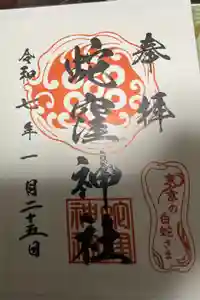 奉拝
蛇窪神社
令和七年一月二十五日
東京の白蛇さま
蛇窪神社